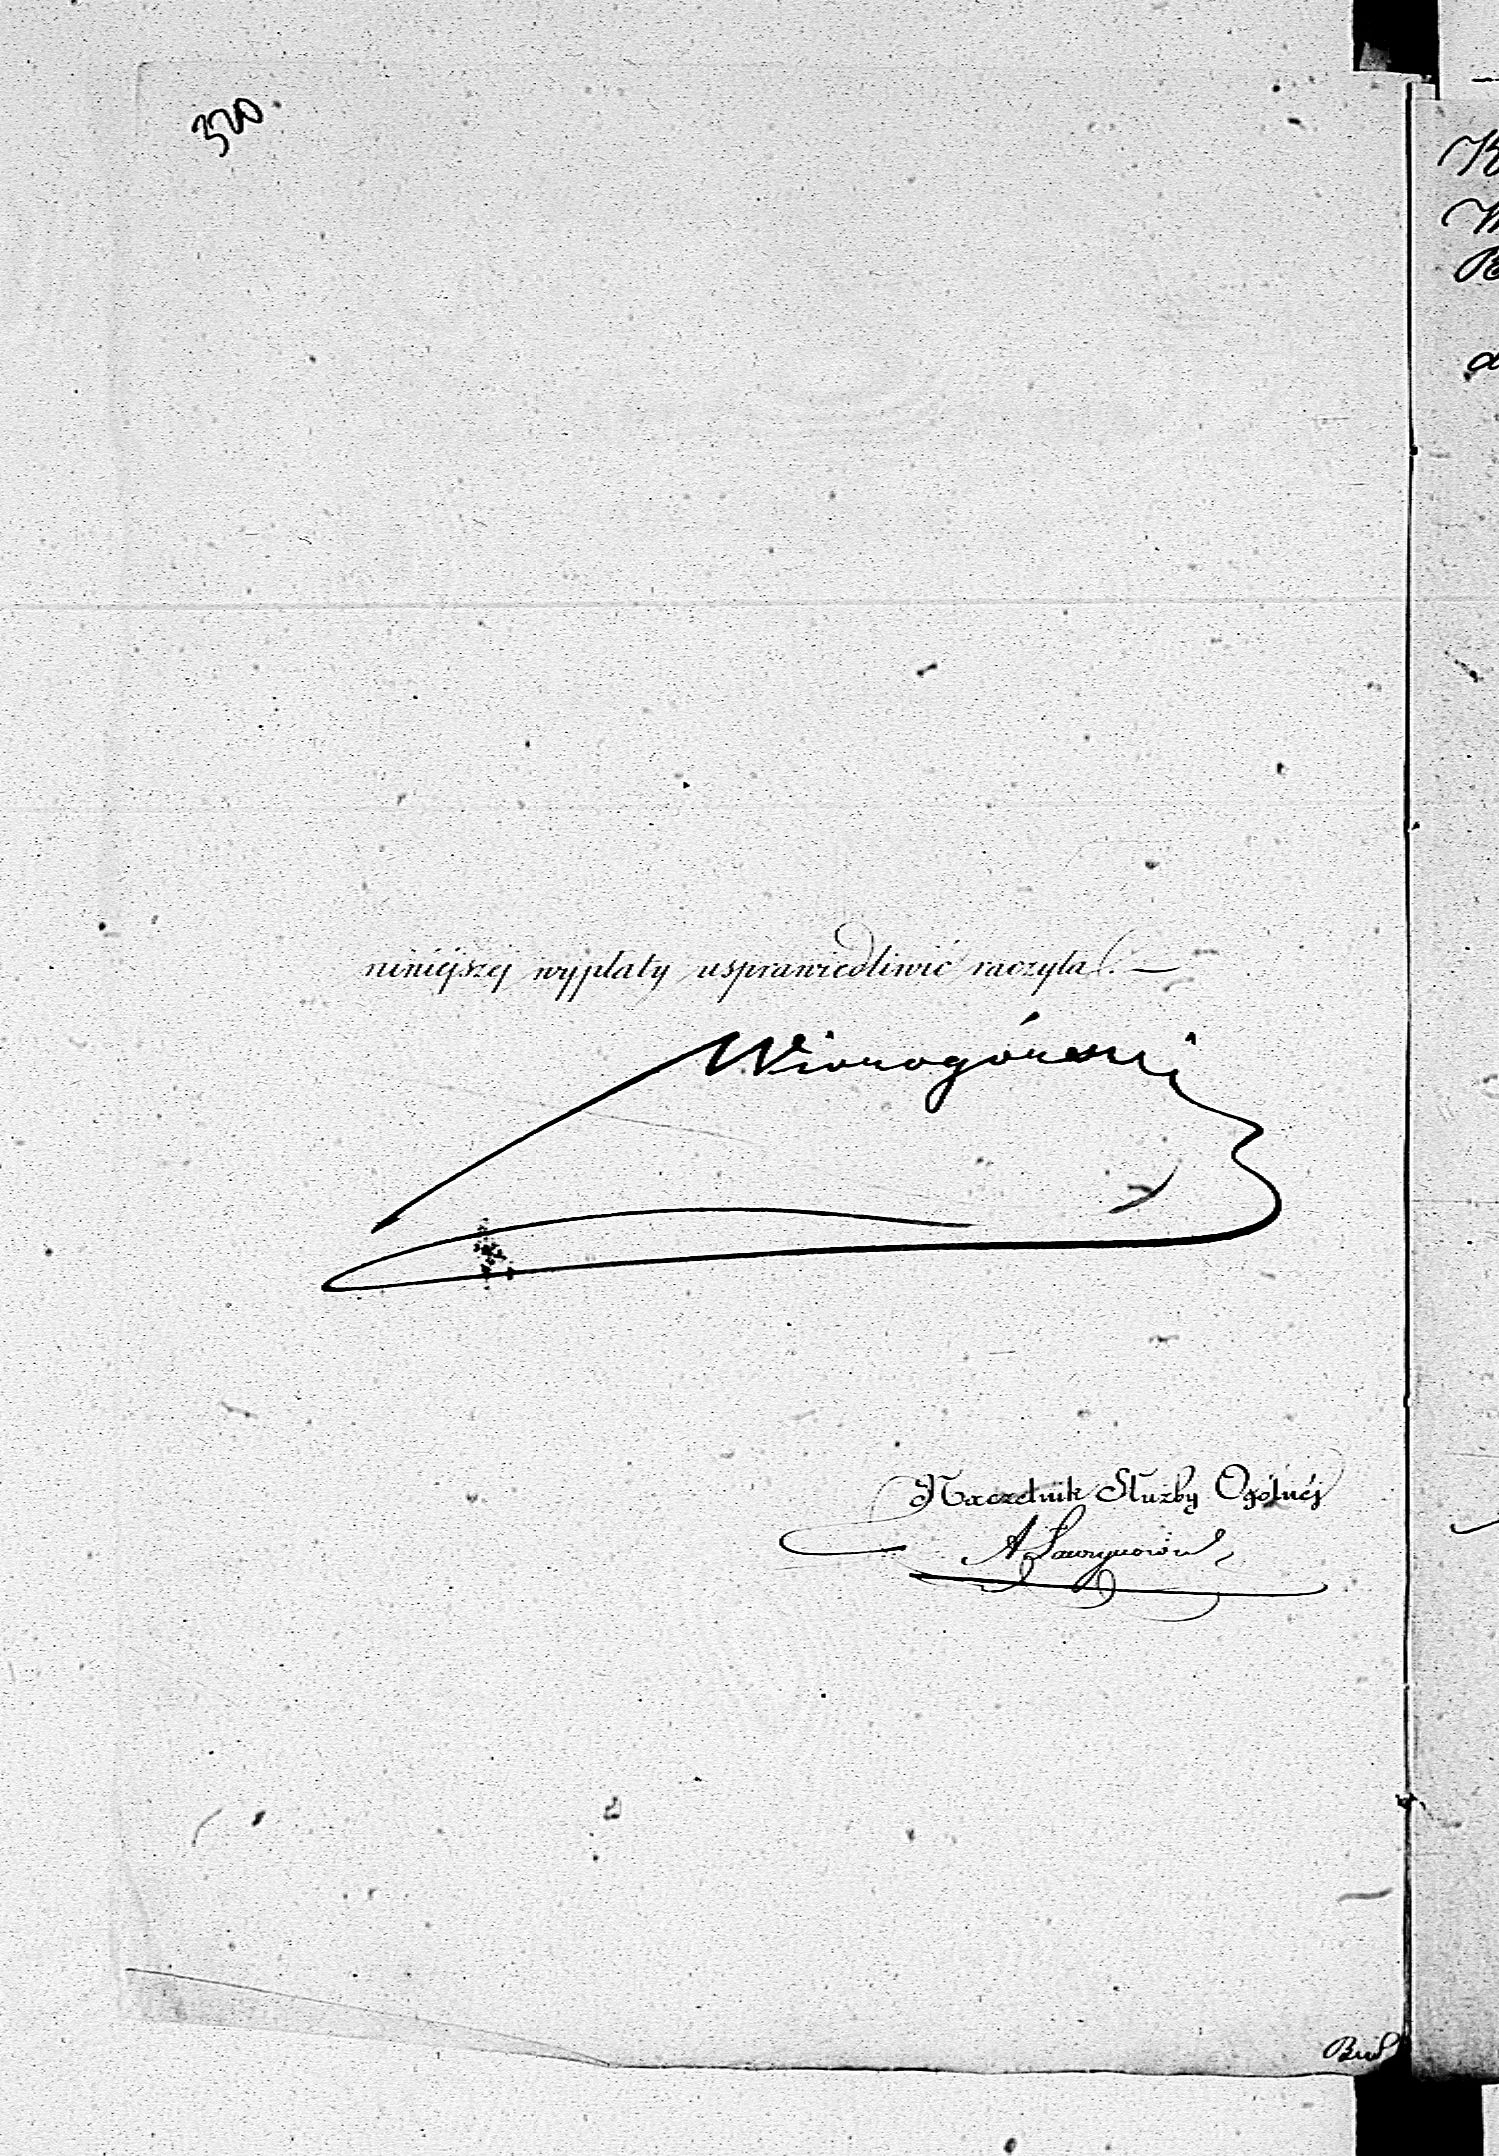 320
niniejszej wypłaty usprawiedliwić raczyła. —
Wiorogórski
Naczelnik Służby Ogólnéj
A. Ławrynowicz